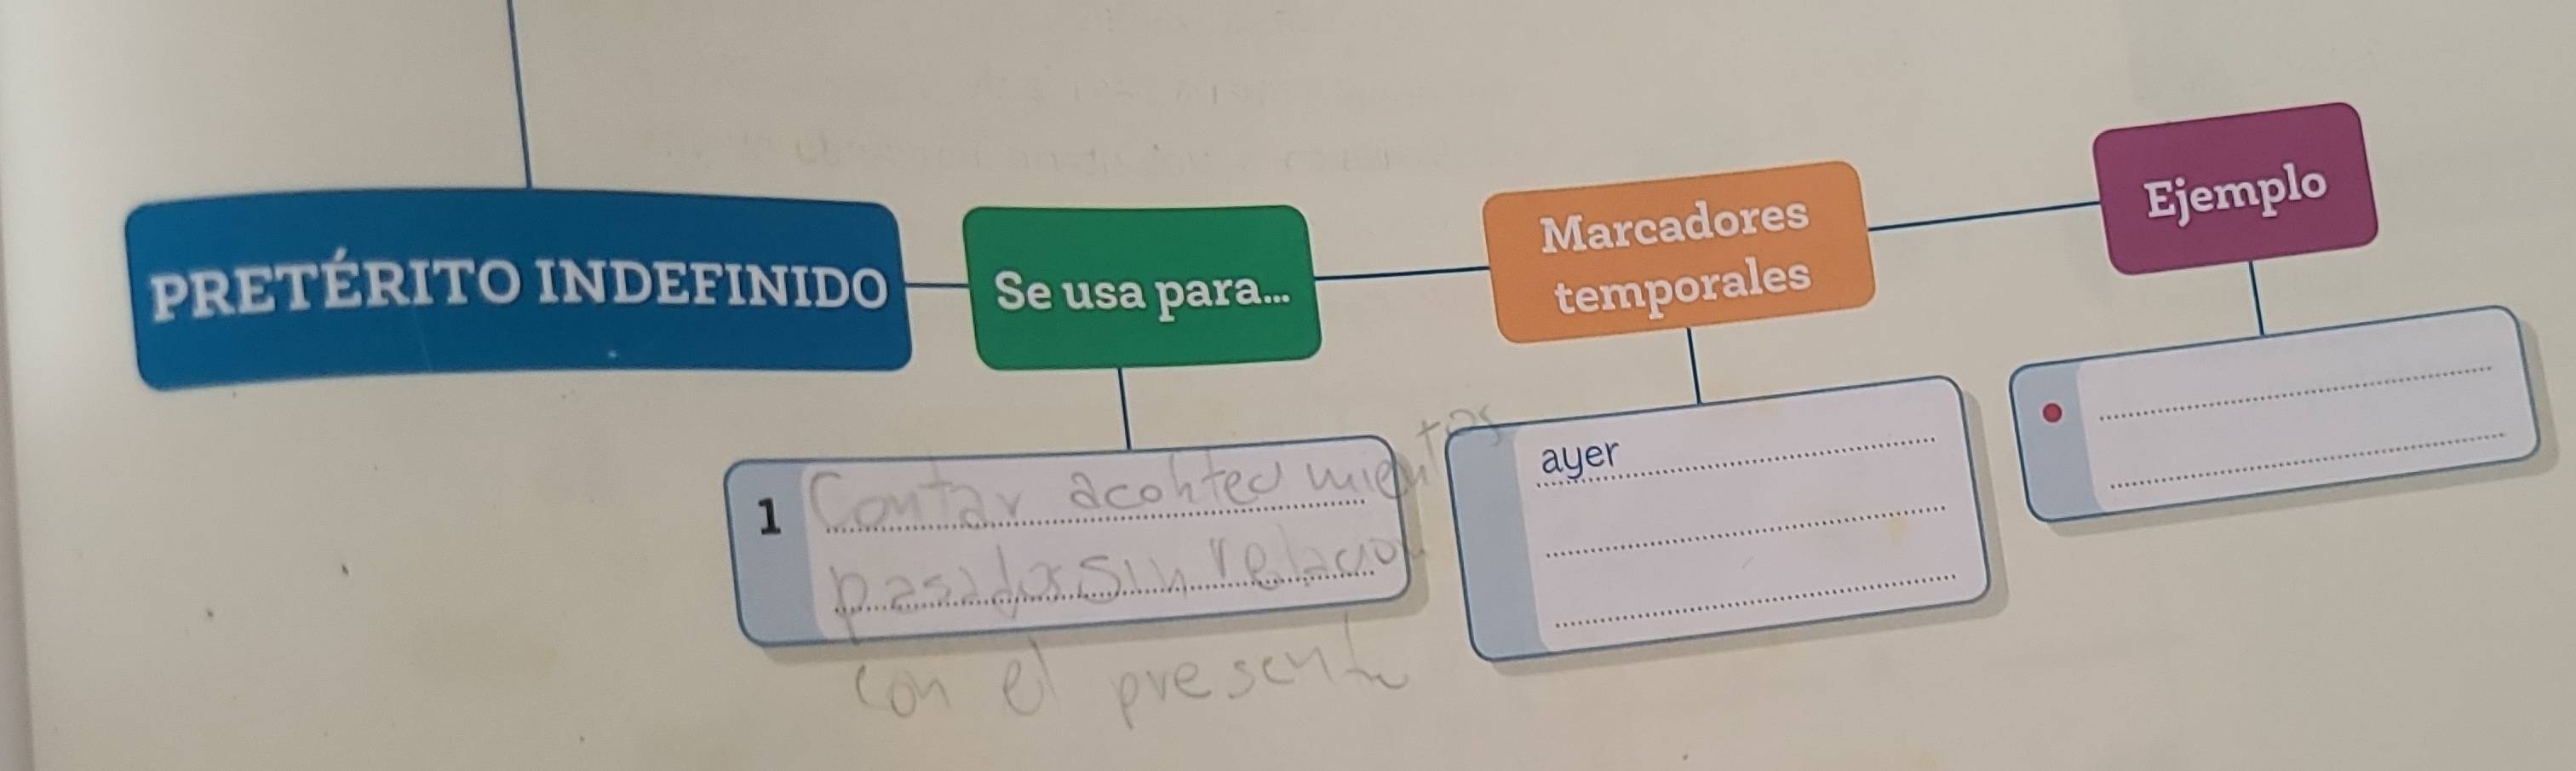 PRETÉRITO INDEFINIDO
Se usa para...
Marcadores
temporales
Ejemplo
1 Contar acontecimientos
pasados sin relacion
con el presente
ayer